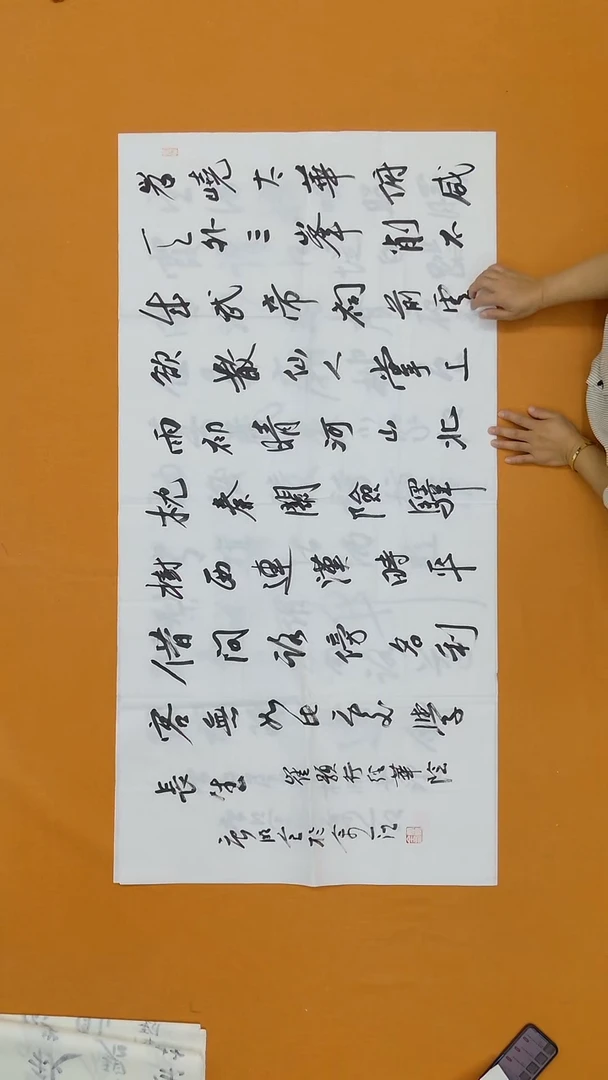 岧嶢太華俯咸
天外三峰削不
成武帝祠前雲
欲散仙人掌上
雨初晴河山北
枕秦關險驛
樹西連漢時平
借問路傍名利
客無如此處學
長生 崔顥行經華陰